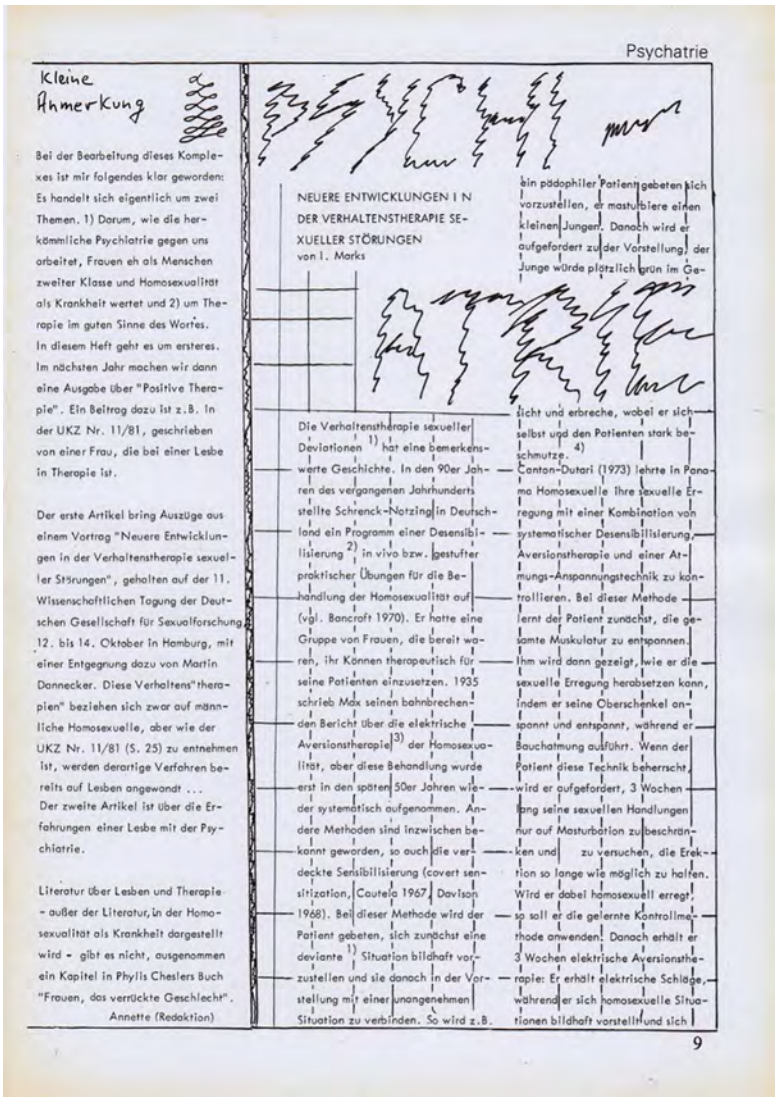 Psychatrie
Kleine
Anmerkung
Bei der Bearbeitung dieses Komple-
xes ist mir folgendes klar geworden:
Es handelt sich eigentlich um zwei
Themen. 1) Darum, wie die her-
kömmliche Psychiatrie gegen uns
arbeitet, Frauen eh als Menschen
zweiter Klasse und Homosexualität
als Krankheit wertet und 2) um The-
rapie im guten Sinne des Wortes.
In diesem Heft geht es um ersteres.
Im nächsten Jahr machen wir dann
eine Ausgabe über "Positive Thera-
pie". Ein Beitrag dazu ist z.B. in
der UKZ Nr. 11/81, geschrieben
von einer Frau, die bei einer Lesbe
in Therapie ist.
Der erste Artikel bring Auszüge aus
einem Vortrag "Neuere Entwicklun-
gen in der Verhaltenstherapie sexuel-
ler Störungen", gehalten auf der 11.
Wissenschaftlichen Tagung der Deut-
schen Gesellschaft für Sexualforschung,
12. bis 14. Oktober in Hamburg, mit
einer Entgegnung dazu von Martin
Dannecker. Diese Verhaltens"thera-
pien" beziehen sich zwar auf männ-
liche Homosexuelle, aber wie der
UKZ Nr. 11/81 (S. 25) zu entnehmen
ist, werden derartige Verfahren be-
reits auf Lesben angewandt ...
Der zweite Artikel ist über die Er-
fahrungen einer Lesbe mit der Psy-
chiatrie.
Literatur über Lesben und Therapie
- außer der Literatur, in der Homo-
sexualität als Krankheit dargestellt
wird - gibt es nicht, ausgenommen
ein Kapitel in Phylis Cheslers Buch
"Frauen, das verrückte Geschlecht".
Annette (Redaktion)
PSYCHI-
ATRIE
NEUERE ENTWICKLUNGEN I N
DER VERHALTENSTHERAPIE SE-
XUELLER STÖRUNGEN
von I. Marks
Die Verhaltenstherapie sexueller
Deviationen 1) hat eine bemerkens-
werte Geschichte. In den 90er Jah-
ren des vergangenen Jahrhunderts
stellte Schrenck-Notzing in Deutsch-
land ein Programm einer Desensibi-
lisierung 2) in vivo bzw. gestufter
praktischer Übungen für die Be-
handlung der Homosexualität auf
(vgl. Bancroft 1970). Er hatte eine
Gruppe von Frauen, die bereit wa-
ren, ihr Können therapeutisch für
seine Patienten einzusetzen. 1935
schrieb Max seinen bahnbrechen-
den Bericht über die elektrische
Aversionstherapie 3) der Homosexua-
lität, aber diese Behandlung wurde
erst in den späten 50er Jahren wie-
der systematisch aufgenommen. An-
dere Methoden sind inzwischen be-
kannt geworden, so auch die ver-
deckte Sensibilisierung (covert sen-
sitization, Cautela 1967, Davison
1968). Bei dieser Methode wird der
Patient gebeten, sich zunächst eine
deviante 1) Situation bildhaft vor-
zustellen und sie danach in der Vor-
stellung mit einer unangenehmen
Situation zu verbinden. So wird z.B.
ein pädophiler Patient gebeten sich
vorzustellen, er masturbiere einen
kleinen Jungen. Danach wird er
aufgefordert zu der Vorstellung, der
Junge würde plötzlich grün im Ge-
sicht und erbreche, wobei er sich
selbst und den Patienten stark be-
schmutze. 4)
Canton-Dutari (1973) lehrte in Pana-
ma Homosexuelle ihre sexuelle Er-
regung mit einer Kombination von
systematischer Desensibilisierung,
Aversionstherapie und einer At-
mungs-Anspannungstechnik zu kon-
trollieren. Bei dieser Methode
lernt der Patient zunächst, die ge-
samte Muskulatur zu entspannen.
Ihm wird dann gezeigt, wie er die
sexuelle Erregung herabsetzen kann,
indem er seine Oberschenkel an-
spannt und entspannt, während er
Bauchatmung ausführt. Wenn der
Patient diese Technik beherrscht,
wird er aufgefordert, 3 Wochen
lang seine sexuellen Handlungen
nur auf Masturbation zu beschrän-
ken und zu versuchen, die Erek-
tion so lange wie möglich zu halten.
Wird er dabei homosexuell erregt,
so soll er die gelernte Kontrollme-
thode anwenden. Danach erhält er
3 Wochen elektrische Aversionsthe-
rapie: Er erhält elektrische Schläge,
während er sich homosexuelle Situa-
tionen bildhaft vorstellt und sich
9